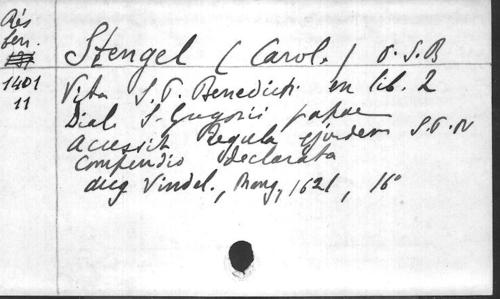 Rés
ben.
1401
11
Stengel (Carol.) O.S.B
Vita S. P. Benedicti ex lib. 2
Dial. S. Gregorii papae
Accessit Regula ejusdem S. P. N
compendio declarata
Aug Vindel., Mang, 1621, 16°